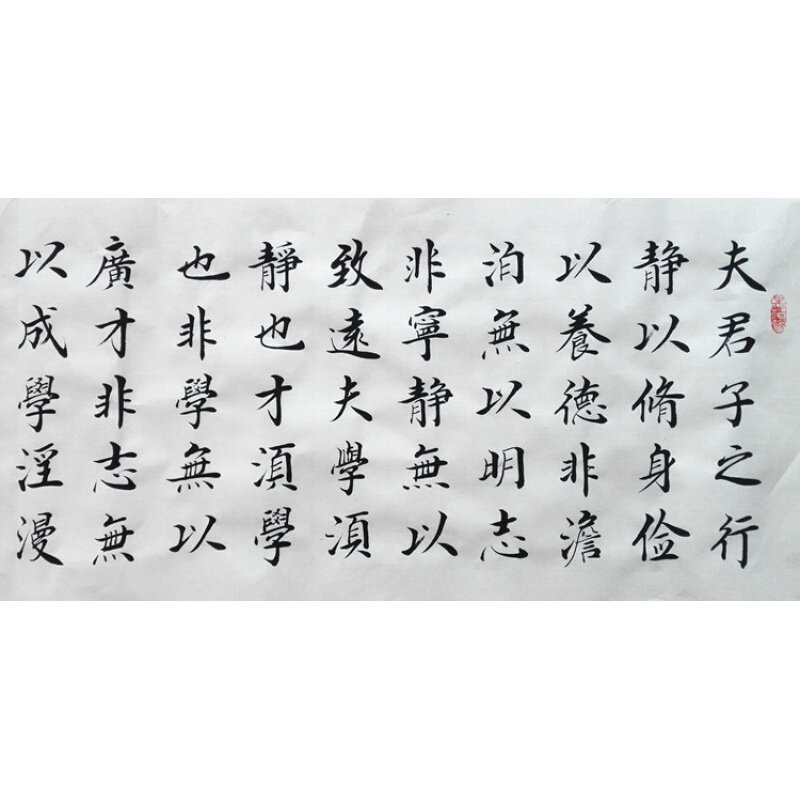 夫君子之行
静以脩身俭
以養德非澹
泊無以明志
非寧静無以
致遠夫學須
靜也才須學
也非學無以
廣才非志無
以成學淫漫